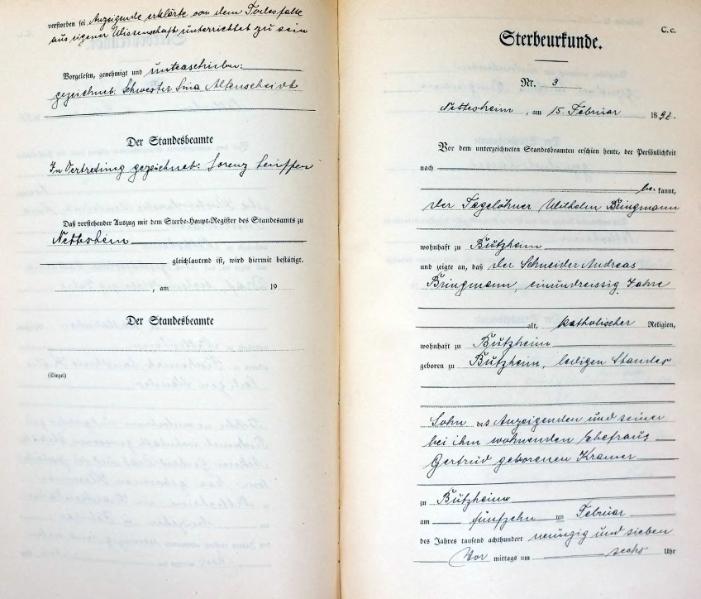 verstorben sei Anzeigende erklärte von dem Todesfalle
aus eigener Wissenschaft unterrichtet zu sein
Vorgelesen, genehmigt und unterschrieben:
gezeichnet: Schwester Lina Altenscheidt
Der Standesbeamte
In Vertretung gezeichnet: Lorenz
Daß vorstehender Auszug mit dem Sterbe-Haupt-Register des Standesamts zu
Nettesheim
gleichlautend ist, wird hiermit bestätigt.
, am 19
Der Standesbeamte
(Siegel)
C. c.
Sterbeurkunde.
Nr. 3
Nettesheim, am 15. Februar 189
Vor dem unterzeichneten Standesbeamten erschien heute, der Persönlichkeit
nach
be kannt,
der Tagelöhner Wilhelm Bringmann
wohnhaft zu Butzheim
und zeigte an, daß der Schneider Andreas
Bringmann, einunddreissig Jahre
alt, katholischer Religion,
wohnhaft zu Butzheim
geboren zu Butzheim, ledigen Standes
Sohn des Anzeigenden und seiner
bei ihm wohnenden Ehefrau
Gertrud geborenen Kramer
zu Butzheim
am fünfzehn ten Februar
des Jahres tausend achthundert neunzig und sieben
Vor mittags um sechs Uhr